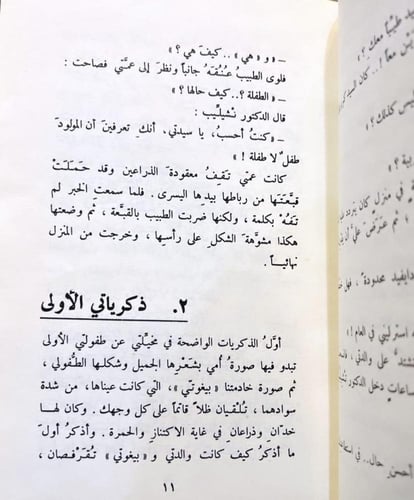 ـ «و «هي»..كيفَ هي؟»
فلوى الطبيبُ عُنُقَهُ جانباً ونظرَ إلى عمَّتي فصاحت:
ـ «الطفلة؟..كيف حالها؟»
قال الدكتور نشيليب:
ـ «كنتُ أحسبُ، يا سيدتي، أنكِ تعرفينَ أن المولودَ
طفلٌ لا طفلة!»
كانت عمتي تقِفُ معقودةَ الذراعين وقد حَمَلَتْ
قبَّعتَها من رباطها بيدِها اليسرى. فلما سمعت الخبر لم
تَفُهْ بكلمة، ولكنها ضربت الطبيب بالقبَّعة، ثم وضعتها
هكذا مشوَّهةَ الشكل على رأسِها، وخرجت من المنزل
نهائياً.
٢. ذكرياتي الأولى
أولُ الذكريات الواضحة في مخيِّلتي عن طفولتي الأولى
تبدو فيها صورةُ أُمي بشَعْرِها الجميل وشكلِها الطُّفولي،
ثم صورة خادمتنا «بيغوتي»، التي كانت عيناها، من شدة
سوادهما، تُلقيان ظلاً قاتماً على كل وجهك. وكان لها
خدّان وذراعان في غاية الاكتناز والحمرة. وأذكرُ أولَ
ما أذكرُ كيفَ كانت والدتي و «بيغوتي» تُقرفصان،
١١
يد طيباً معك؟»
كان السيد
كذلك؟»
في منزل كان يتردد
ثم عرَضَ عليَّ أن
دايفيد محدودة»، فهل
استرليني في العام!»
على والدتي،
دخل الدكتور
أحسن حال..